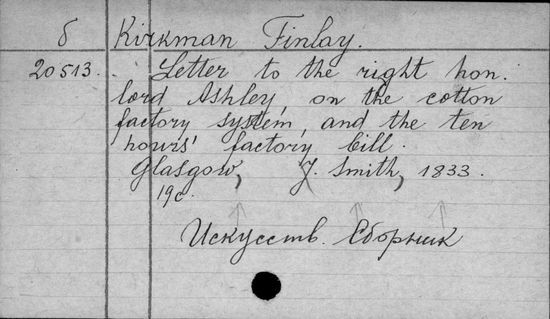 б Kirkman Finlay.
20513. Letter to the right hon.
lord Ashley, on the cotton
factory system, and the ten
hours' factory bill.
Glasgow, J. Smith, 1833.
19c.
Искусств. Сборник